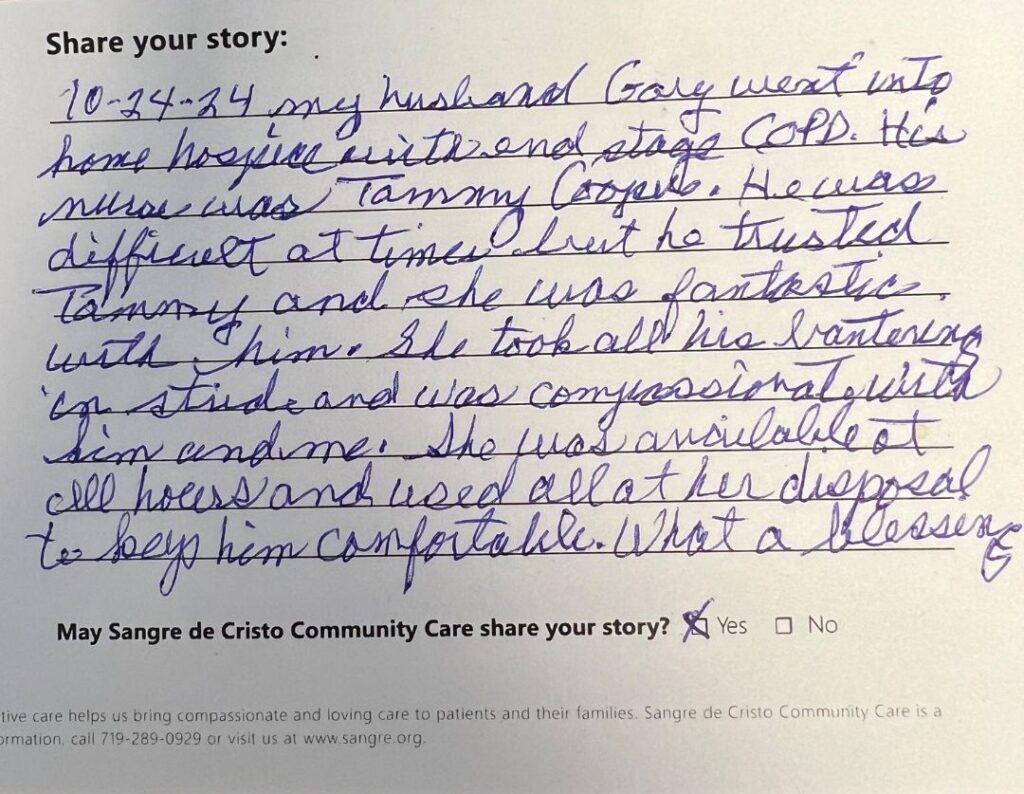 Share your story:
10-24-24 my husband Gary went into
home hospice with end stage COPD. His
nurse was Tammy Cooper. He was
difficult at times but he trusted
Tammy and she was fantastic
with him. She took all his bantering
in stride and was compassionate with
him and me. She was available at
all hours and used all at her disposal
to keep him comfortable. What a blessing
May Sangre de Cristo Community Care share your story? Yes No
tive care helps us bring compassionate and loving care to patients and their families. Sangre de Cristo Community Care is a
ormation, call 719-289-0929 or visit us at www.sangre.org.